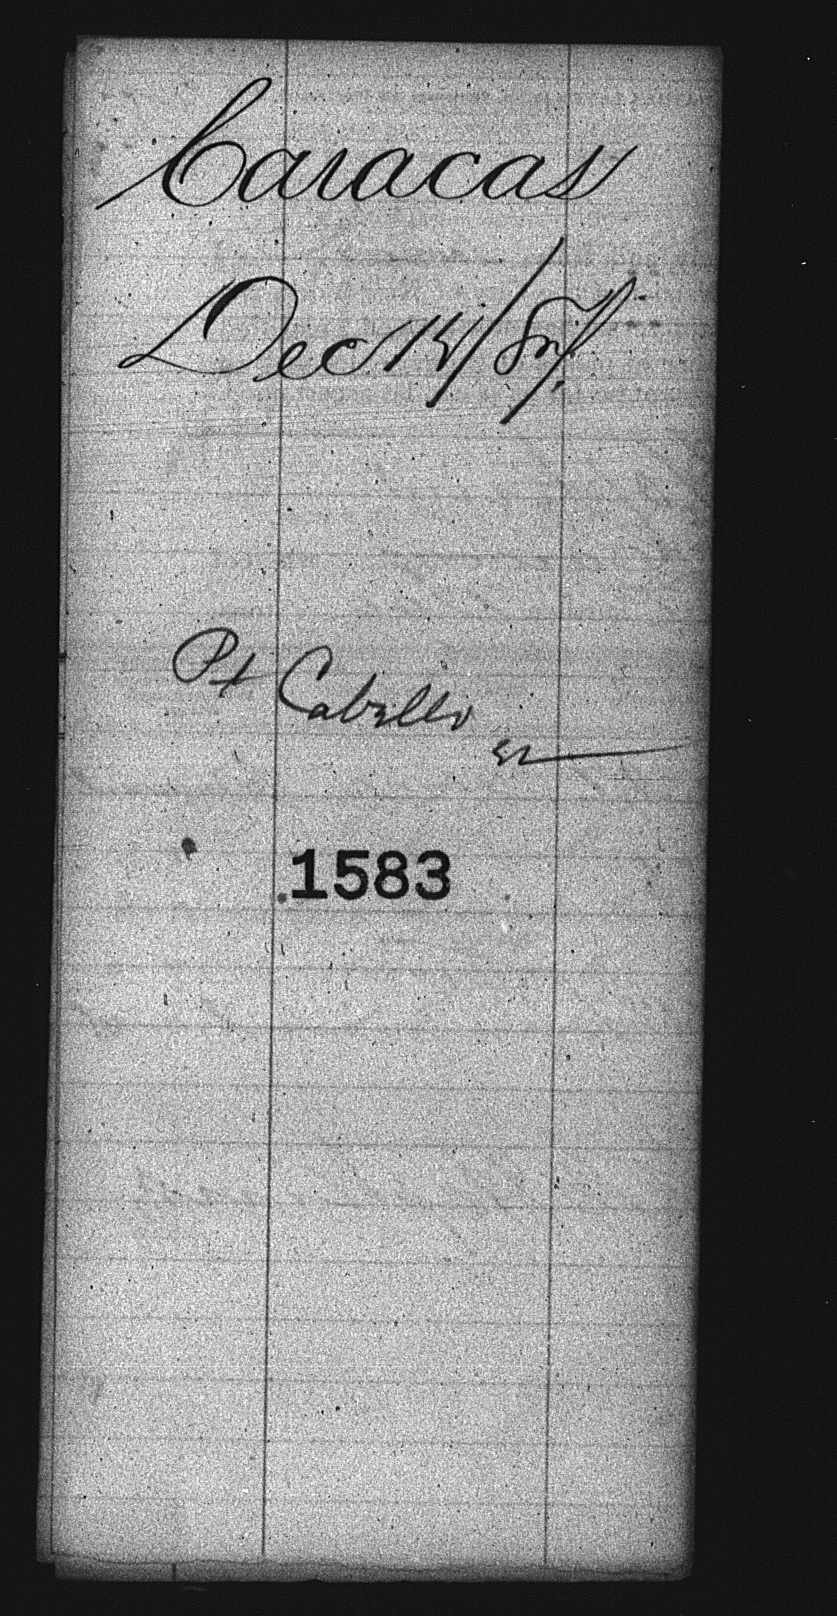 Caracas
Dec 14/87.
Pt Cabello
1583